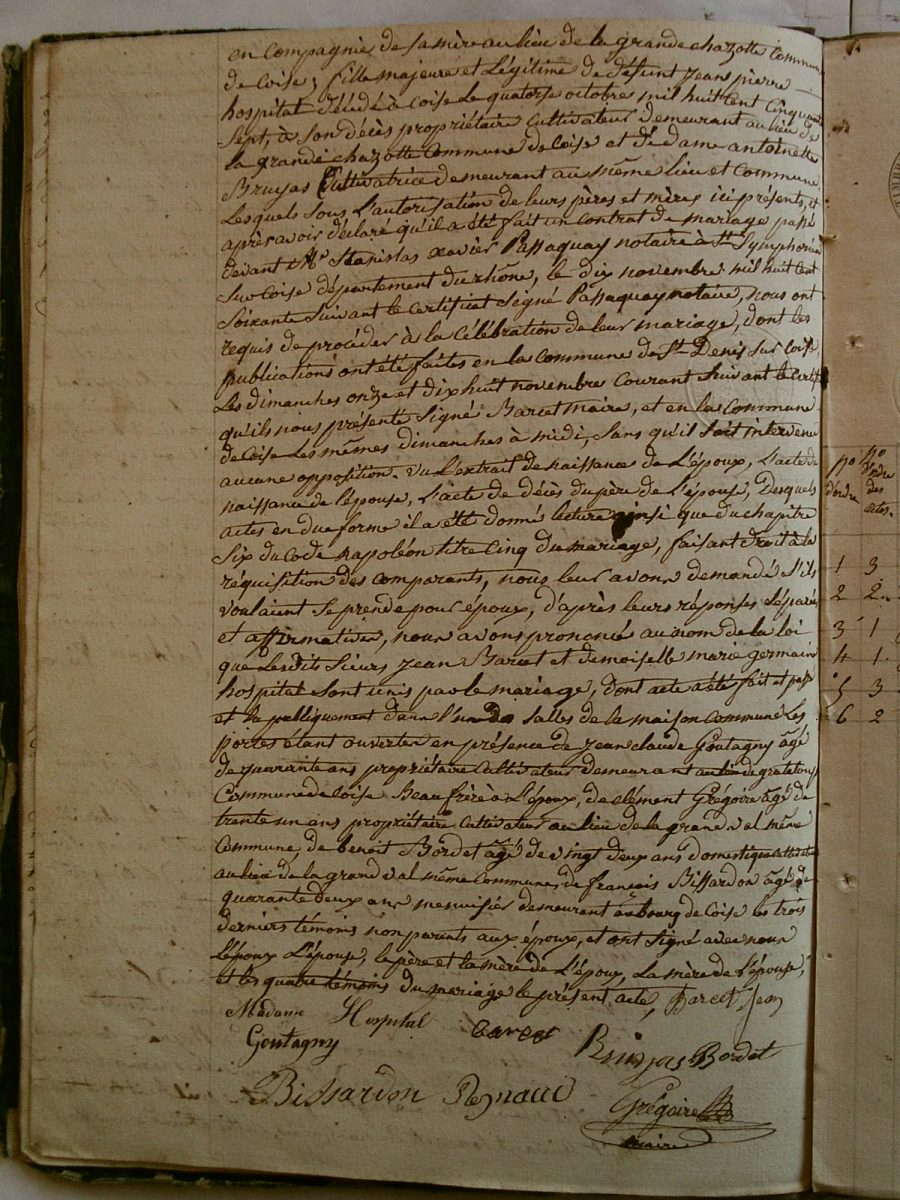 en Compagnie de sa mère au lieu de la grande chazotte commune
de Coise; fille majeure et Légitime de défunt Jean pierre
hospital décédé à Coise Le quatorse octobres mil huit cent Cinquante
Sept, à son décès propriétaire Cultivateur demeurant au lieu de
la grande chazotte Commune de Coise et de dame antoinette
Bruyas Cultivatrice demeurant au même lieu et Commune
Lesquels sous L'autorisation de leurs pères et mères ici présents, et
après avoir déclaré qu'il a été fait un contrat de mariage passé
devant Me Stanislas xavier Passaquay notaire à St Symphorien
Sur Coise département du rhône, le dix novembre mil huit cent
Soixante Suivant le Certificat Signé Passaquay notaire, nous ont
requis de procéder à la Célébration de leur mariage, dont les
publications ont été faites en la Commune de St Denis sur Coise
Les dimanches onze et dix huit novembre Courant Suivant le Certif
qu'ils nous présenté Signé Barcet maire, et en la Commune
de Coise Les mêmes dimanches à midi, Sans qu'il soit intervenu
aucune opposition. Vu L'extrait de naissance de L'époux, L'acte de
naissance de L'épouse, L'acte de décès du père de L'épouse, Desquels
actes en due forme il a été donné lecture ainsi que du chapitre
Six du Code napoléon titre Cinq du mariage, faisant droit à la
réquisition des comparants, nous leur avons demandé s'ils
voulaient Se prende pour époux, d'après leurs réponses Séparées
et affirmatives, nous avons prononcé au nom de la loi
que Lesdits Sieurs Jean Barcet et demoiselle marie germaine
hospital Sont unis par le mariage, dont acte a été fait et passé
et lu publiquement dans l'une des Salles de la maison commune Les
portes étant ouvertes en présence de jean claude Goutagny âgé
de quarante ans propriétaire Cultivateur demeurant au lieu de grataloup
Commune de Coise Beau frère à L'époux, de clément Grégoire âgé de
trente un ans propriétaire Cultivateur au lieu de la grand val même
Commune, de benoit Bordet âgé de vingt deux ans domestique
au lieu de la grand val même Commune, de françois Bissardon âgé de
quarante deux ans menuisier demeurant au bourg de Coise les trois
derniers témoins non parents aux époux, et ont signé avec nous
L'époux L'épouse, le père et la mère de L'époux, La mère de L'épouse,
et les quatre témoins du mariage le présent acte, Barcet Jean
Madame Hospital Barcet
Goutagny Bruyas Bordet
Bissardon Reynaud Grégoire
maire
no d'ordre
no d'ordre des actes.
1 3
2 2
3 1
4 1
5 3
6 2
TIMBR